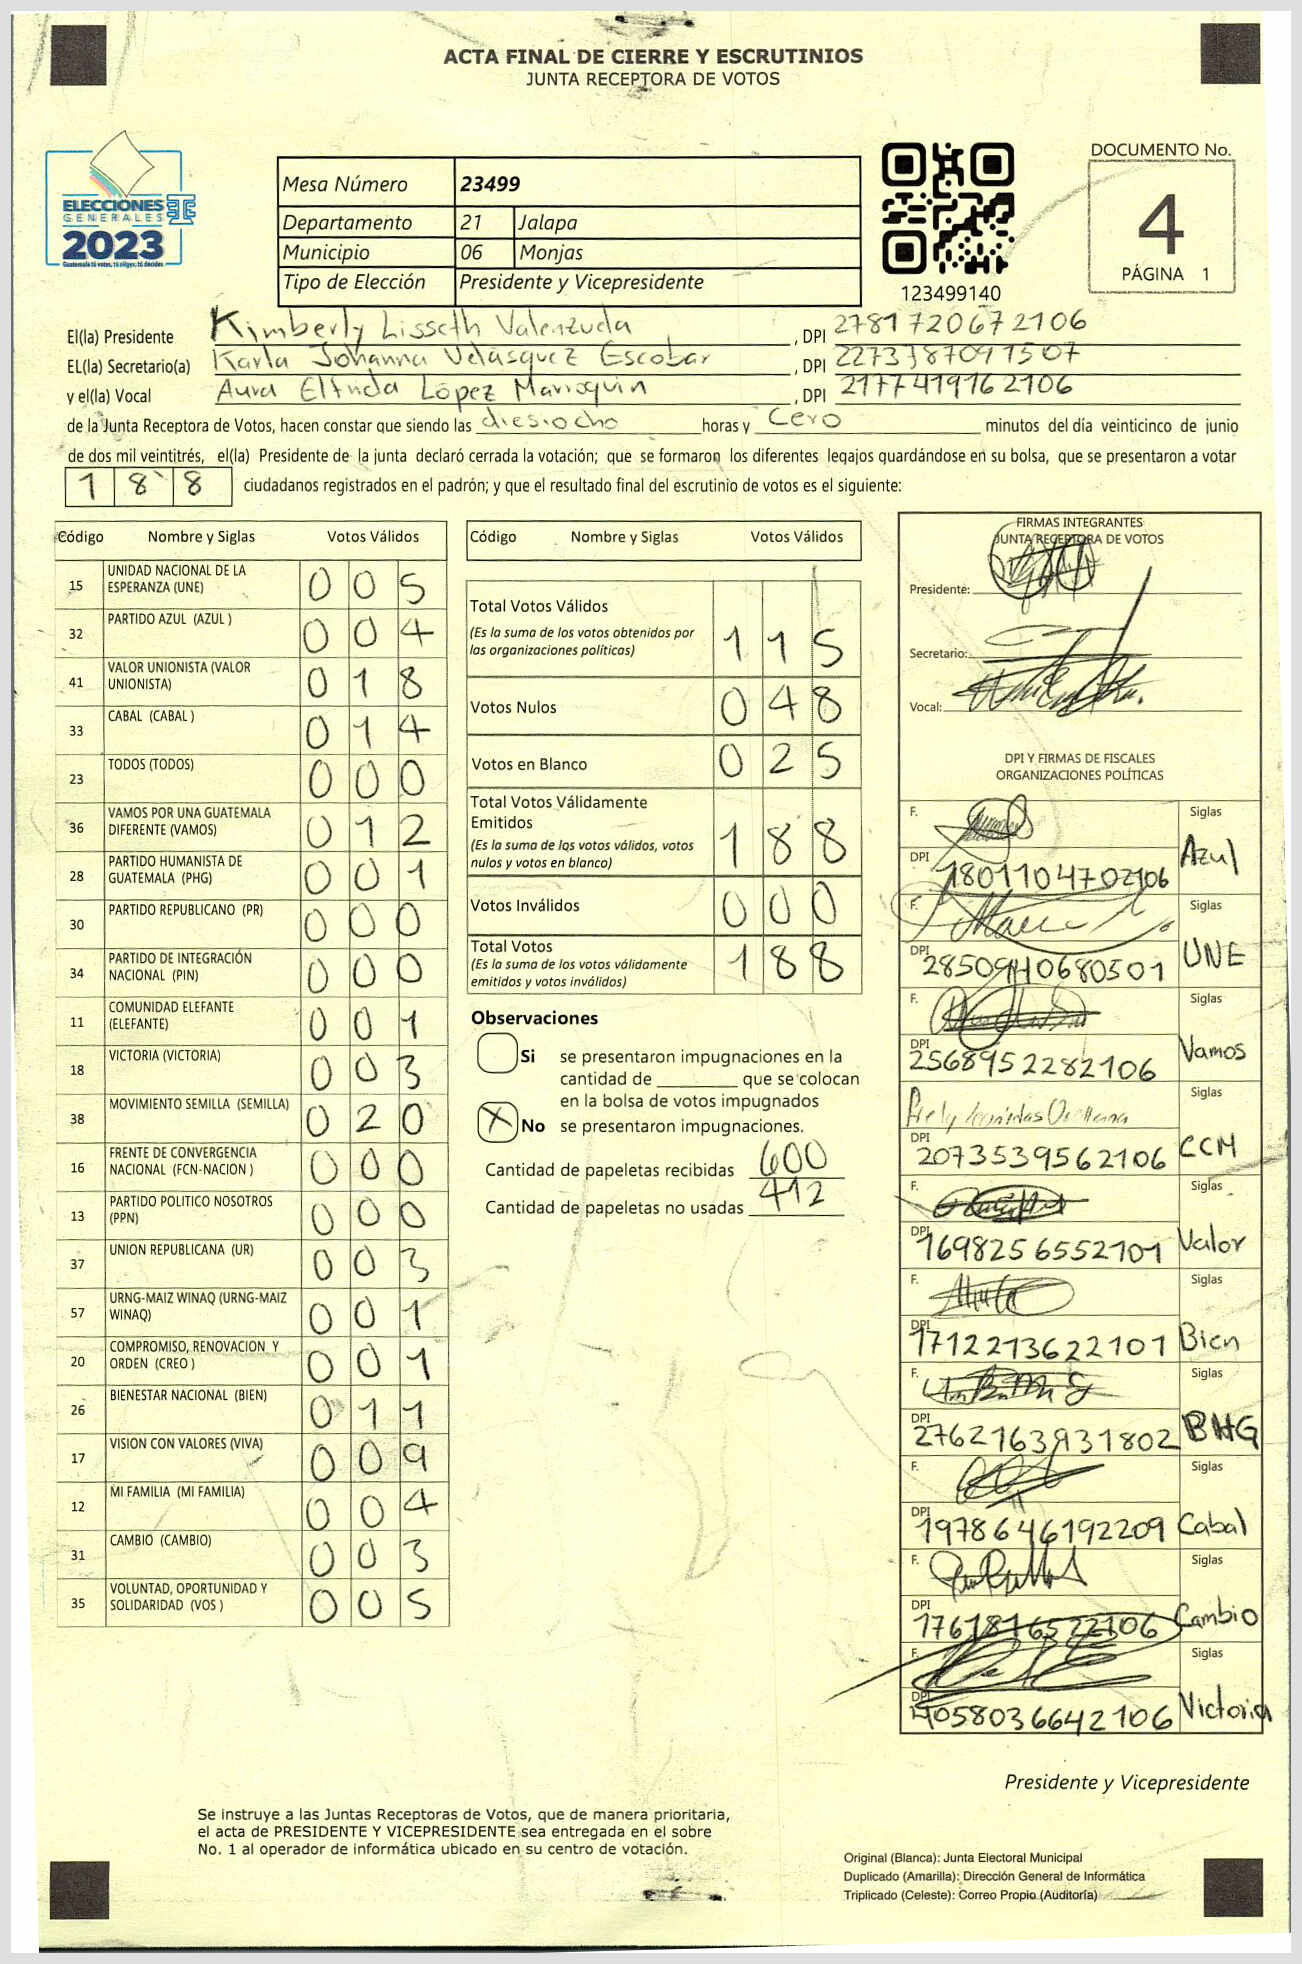 ACTA FINAL DE CIERRE Y ESCRUTINIOS
JUNTA RECEPTORA DE VOTOS
ELECCIONES
GENERALES
2023
Guatemala tú votes, tú eliges, tú decides
Mesa Número 23499
Departamento 21 Jalapa
Municipio 06 Monjas
Tipo de Elección Presidente y Vicepresidente
123499140
DOCUMENTO No.
4
PÁGINA 1
El(la) Presidente Kimberly Lisseth Valenzuela, DPI 2781720672106
EL(la) Secretario(a) Karla Johanna Velásquez Escobar, DPI 2273387091507
y el(la) Vocal Aura Elfrida López Marroquin, DPI 2177419162106
de la Junta Receptora de Votos, hacen constar que siendo las diesiocho horas y Cero minutos del día veinticinco de junio
de dos mil veintitrés, el(la) Presidente de la junta declaró cerrada la votación; que se formaron los diferentes legajos guardándose en su bolsa, que se presentaron a votar
188 ciudadanos registrados en el padrón; y que el resultado final del escrutinio de votos es el siguiente:
Código Nombre y Siglas Votos Válidos
15 UNIDAD NACIONAL DE LA ESPERANZA (UNE) 005
32 PARTIDO AZUL (AZUL ) 004
41 VALOR UNIONISTA (VALOR UNIONISTA) 018
33 CABAL (CABAL ) 014
23 TODOS (TODOS) 000
36 VAMOS POR UNA GUATEMALA DIFERENTE (VAMOS) 012
28 PARTIDO HUMANISTA DE GUATEMALA (PHG) 001
30 PARTIDO REPUBLICANO (PR) 000
34 PARTIDO DE INTEGRACIÓN NACIONAL (PIN) 000
11 COMUNIDAD ELEFANTE (ELEFANTE) 001
18 VICTORIA (VICTORIA) 003
38 MOVIMIENTO SEMILLA (SEMILLA) 020
16 FRENTE DE CONVERGENCIA NACIONAL (FCN-NACION ) 000
13 PARTIDO POLITICO NOSOTROS (PPN) 000
37 UNION REPUBLICANA (UR) 003
57 URNG-MAIZ WINAQ (URNG-MAIZ WINAQ) 001
20 COMPROMISO, RENOVACION Y ORDEN (CREO ) 001
26 BIENESTAR NACIONAL (BIEN) 011
17 VISION CON VALORES (VIVA) 009
12 MI FAMILIA (MI FAMILIA) 004
31 CAMBIO (CAMBIO) 003
35 VOLUNTAD, OPORTUNIDAD Y SOLIDARIDAD (VOS ) 005
Código Nombre y Siglas Votos Válidos
Total Votos Válidos 115
(Es la suma de los votos obtenidos por las organizaciones políticas)
Votos Nulos 048
Votos en Blanco 025
Total Votos Válidamente Emitidos 188
(Es la suma de los votos válidos, votos nulos y votos en blanco)
Votos Inválidos 000
Total Votos 188
(Es la suma de los votos válidamente emitidos y votos inválidos)
Observaciones
Si se presentaron impugnaciones en la
cantidad de ________ que se colocan
en la bolsa de votos impugnados
X No se presentaron impugnaciones.
Cantidad de papeletas recibidas 600
Cantidad de papeletas no usadas 412
FIRMAS INTEGRANTES
JUNTA RECEPTORA DE VOTOS
Presidente:
Secretario:
Vocal:
DPI Y FIRMAS DE FISCALES
ORGANIZACIONES POLÍTICAS
F. Siglas
DPI 1801104702106 Azul
F. Siglas
DPI 2850940680501 UNE
F. Siglas
DPI 2568952282106 Vamos
Siglas
DPI 2073539562106 CCM
F. Siglas
DPI 1698256552101 Valor
F. Siglas
DPI 1712213622101 Bien
F. Siglas
DPI 2762163931802 BHG
F. Siglas
DPI 1978646192209 Cabal
F. Siglas
DPI 1761816522106 Cambio
F. Siglas
DPI 4058036642106 Victoria
Presidente y Vicepresidente
Se instruye a las Juntas Receptoras de Votos, que de manera prioritaria,
el acta de PRESIDENTE Y VICEPRESIDENTE sea entregada en el sobre
No. 1 al operador de informática ubicado en su centro de votación.
Original (Blanca): Junta Electoral Municipal
Duplicado (Amarilla): Dirección General de Informática
Triplicado (Celeste): Correo Propio (Auditoría)